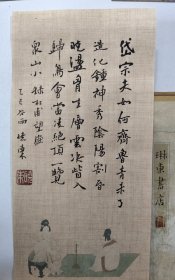 岱宗夫如何齊魯青未了
造化鍾神秀陰陽割昏
曉盪胷生層雲决眥入
歸鳥會當凌絕頂一覽
衆山小 錄杜甫望嶽
乙巳谷雨
琳東書店